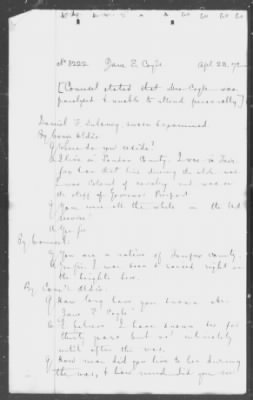 No 8222 Jane E. Coyle Apl 23, 72
[Counsel stated that Mrs Coyle was
paralyzed & unable to attend personally]
Daniel F. Dulaney sworn & examined
By Comr Aldis
Q Where do you reside?
A I live in Loudon County. I was in Fair-
fax but that time during the old war
I was Colonel of cavalry and was on
the staff of Governor Pierpont
Q You were all the while in the U.S.
service?
A Yes sir
By Counsel:
Q You are a native of Fairfax County.
A Yes sir I was born & raised right on
the heights here.
By Comr Aldis
Q How long have you known Mrs
Jane E. Coyle
A I believe I have known her for
thirty years but not intimately
until after the war.
Q How near did you live to her during
the war, & how much did you see